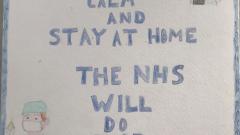 AND
STAY AT HOME
THE NHS
WILL
DO